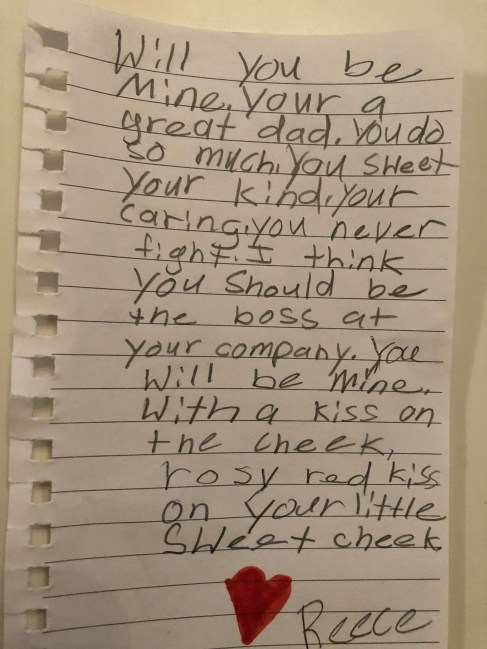 Will you be
Mine. Your a
great dad. You do
so much. You sweet
your kind. your
caring. you never
fight. I think
you should be
the boss at
your company. You
will be mine.
With a kiss on
the cheek,
rosy red kiss
on your little
Sweet cheek
Reece